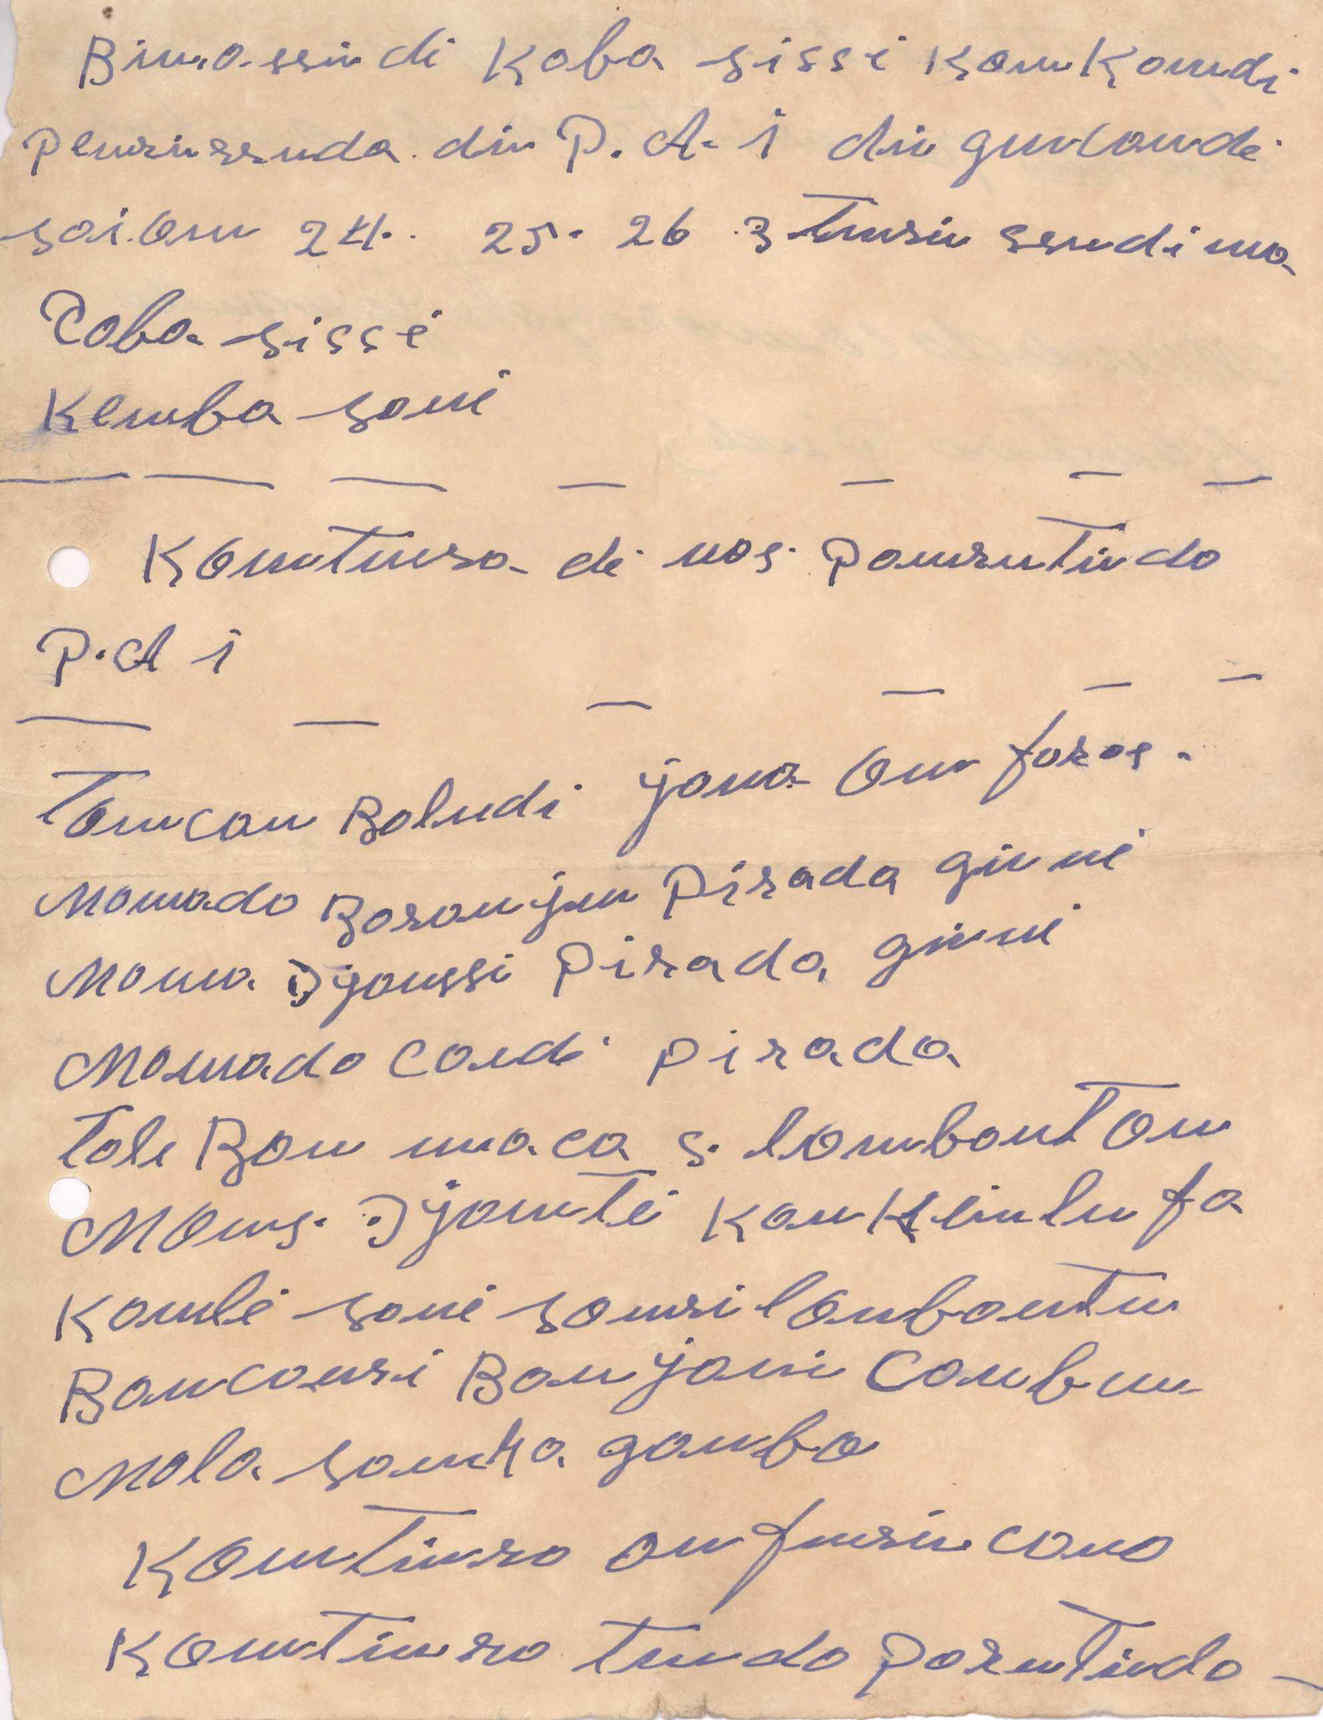 Bimossindi Koba sissi KomKomdi
pemsissuda din P. A. i din guvcomdi
soi.om 24. 25. 26 3 tmsin ssudi mo
Coba sissi
Kemba soni
Komtimso di nos pomsutindo
P.A i
Tomcom Boludi jona om foros.
Momado Boromjm pirada gini
Moma Djoussi pirada gini
Momado Condi pirada
tole Bom maca s. lombontom
Moms. Djomte Kon
Komle soni somsi lonbontu
Boncomsi Bomjoni Combum
Mola somka gombo
Komtimso omfmsin como
Komtimso tmdo porutindo